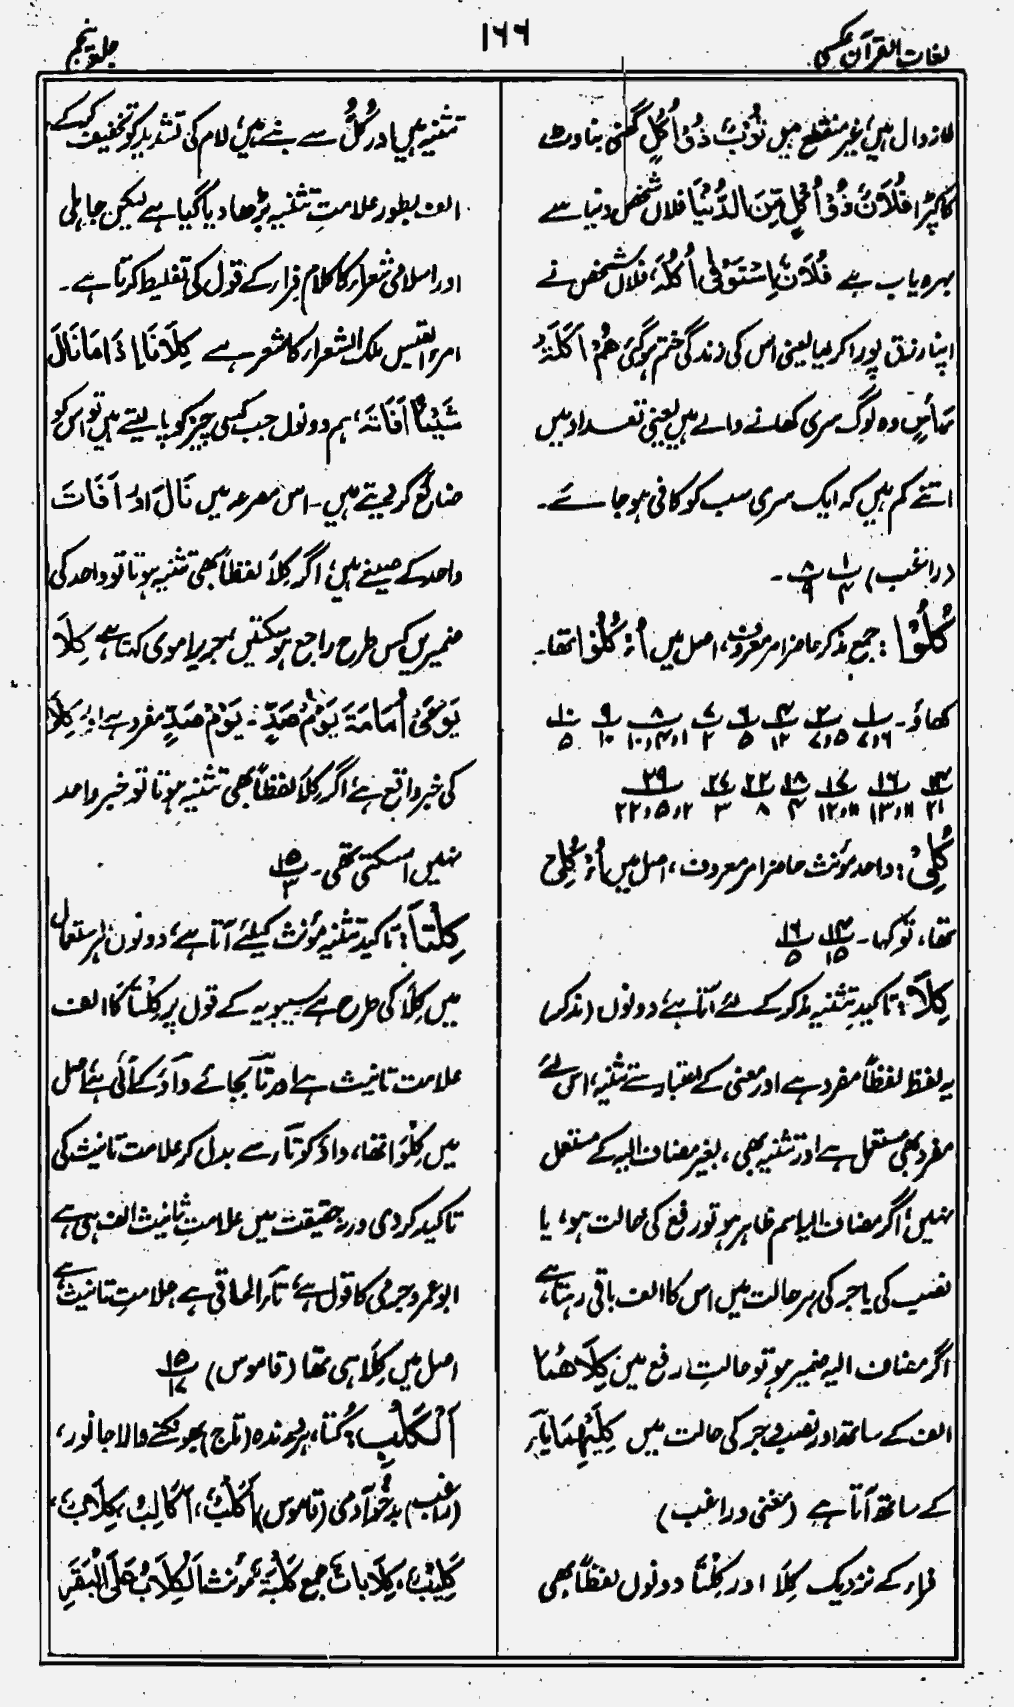 لغات القرآن عکسی
۱۶۶
جلد پنجم
لازوال ہیں، غیر منقطع ہیں ثَوْبٌ ذُوْ اُکُلٍ گھنی بناوٹ
کا کپڑا فُلَانٌ ذُوْ اُکُلٍ مِّنَ الدُّنْیَا فلاں شخص دنیا سے
بہرہ یاب ہے فُلَانٌ اِسْتَوْفٰی اُکُلَہٗ، فلاں شخص نے
اپنا رزق پورا کر لیا یعنی اس کی زندگی ختم ہوگئی ھُمْ اَکَلَۃُ
رَأْسٍ وہ لوگ سری کھانے والے ہیں یعنی تعداد میں
اتنے کم ہیں کہ ایک سری سب کو کافی ہوجائے۔
(راغب) ۱/۴ ۸/۹ ۔
کُلُوْا : جمع مذکر حاضر امر معروف، اصل میں اُؤْکُلُوْا تھا۔
کھاؤ۔ ۱/۶،۷ ۲/۵،۷ ۴/۱۲ ۶/۵ ۷/۲ ۸/۱،۴،۱۰ ۹/۱۰ ۱۰/۵
۱۴/۲۱ ۱۶/۱۱،۱۳ ۱۷/۱۱،۱۲ ۱۸/۴ ۲۲/۸ ۲۷/۳ ۲۹/۲،۵،۲۲
کُلِیْ : واحد مؤنث حاضر امر معروف، اصل میں اُؤْکُلِیْ
تھا، تو کھا۔ ۱۴/۱۵ ۱۶/۵
کِلَا : تاکیدِ تثنیہ مذکر کے لئے آتا ہے دونوں (مذکر)
یہ لفظ لفظاً مفرد ہے اور معنی کے اعتبار سے تثنیہ، اس لئے
مفرد بھی مستعمل ہے اور تثنیہ بھی، بغیر مضاف الیہ کے مستعمل
نہیں، اگر مضاف الیہ اسم ظاہر ہو تو رفع کی حالت ہو، یا
نصب کی یا جر کی ہر حالت میں اس کا الف باقی رہتا ہے،
اگر مضاف الیہ ضمیر ہو تو حالتِ رفع میں کِلَاھُمَا
الف کے ساتھ اور نصب و جر کی حالت میں کِلَیْہِمَا یاء
کے ساتھ آتا ہے (مغنی و راغب)
فراء کے نزدیک کِلَا اور کِلْتَا دونوں لفظاً بھی
تثنیہ ہیں اور کُلٌّ سے بنے ہیں، لام کی تشدید کو تخفیف کرکے
الف بطور علامتِ تثنیہ بڑھا دیا گیا ہے لیکن جاہلی
اور اسلامی شعراء کا کلام فراء کے قول کی تغلیط کرتا ہے۔
امرء القیس ملک الشعراء کا شعر ہے کِلَانَا اِذَا مَا نَالَ
شَیْئًا اَفَاتَہٗ، ہم دونوں جب کسی چیز کو پالیتے ہیں تو اس کو
ضائع کر دیتے ہیں۔ اس مصرعہ میں نَالَ اور اَفَاتَ
واحد کے صیغے ہیں، اگر کِلَا لفظاً بھی تثنیہ ہوتا تو واحد کی
ضمیریں کس طرح راجع ہوسکتیں، جریر اموی کہتا ہے کِلَا
یَوْمَیْ اُمَامَۃَ یَوْمُ صَدٍّ۔ یَوْمُ صَدٍّ مفرد ہے اور کِلَا
کی خبر واقع ہے، اگر کِلَا لفظاً بھی تثنیہ ہوتا تو خبر واحد
نہیں آسکتی تھی۔ ۱۵/۳
کِلْتَا : تاکید تثنیہ مؤنث کیلئے آتا ہے، دونوں، استعمال
میں کِلَا کی طرح ہے سیبویہ کے قول پر کِلْتَا کا الف
علامت تانیث ہے اور تاء بجائے واؤ کے آئی ہے، اصل
میں کِلْوَا تھا، واؤ کو تاء سے بدل کر علامت تانیث کی
تاکید کردی ورنہ حقیقت میں علامتِ تانیث الف ہی ہے
ابو عمرو جرمی کا قول ہے، تاء الحاقی ہے علامتِ تانیث ہے
اصل میں کِلَا ہی تھا (قاموس) ۱۵/۱۷
اَلْکَلْبِ : کُتا، ہر درندہ (تاج) بھونکنے والا جانور،
(راغب) بد خو آدمی (قاموس) اَکْلُبٌ، اَکَالِبُ، کِلَابٌ،
کَلِیْبٌ، کِلَابَاتٌ جمع کَلْبَۃٌ مؤنث اَلْکِلَابُ عَلَی الْبَقَرِ